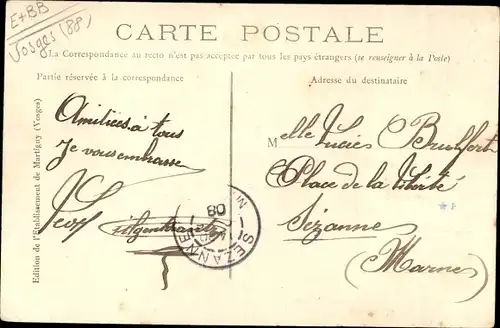 E+BB
Vosges (88)
CARTE POSTALE
La Correspondance au recto n'est pas acceptée par tous les pays étrangers (se renseigner à la Poste)
Partie réservée à la correspondance
Adresse du destinataire
Edition de l'Etablissement de Martigny (Vosges)
Amitiés à tous
Je vous embrasse
Melle Lucie
Place de la Liberté
Sézanne
(Marne)
SEZANNE
08